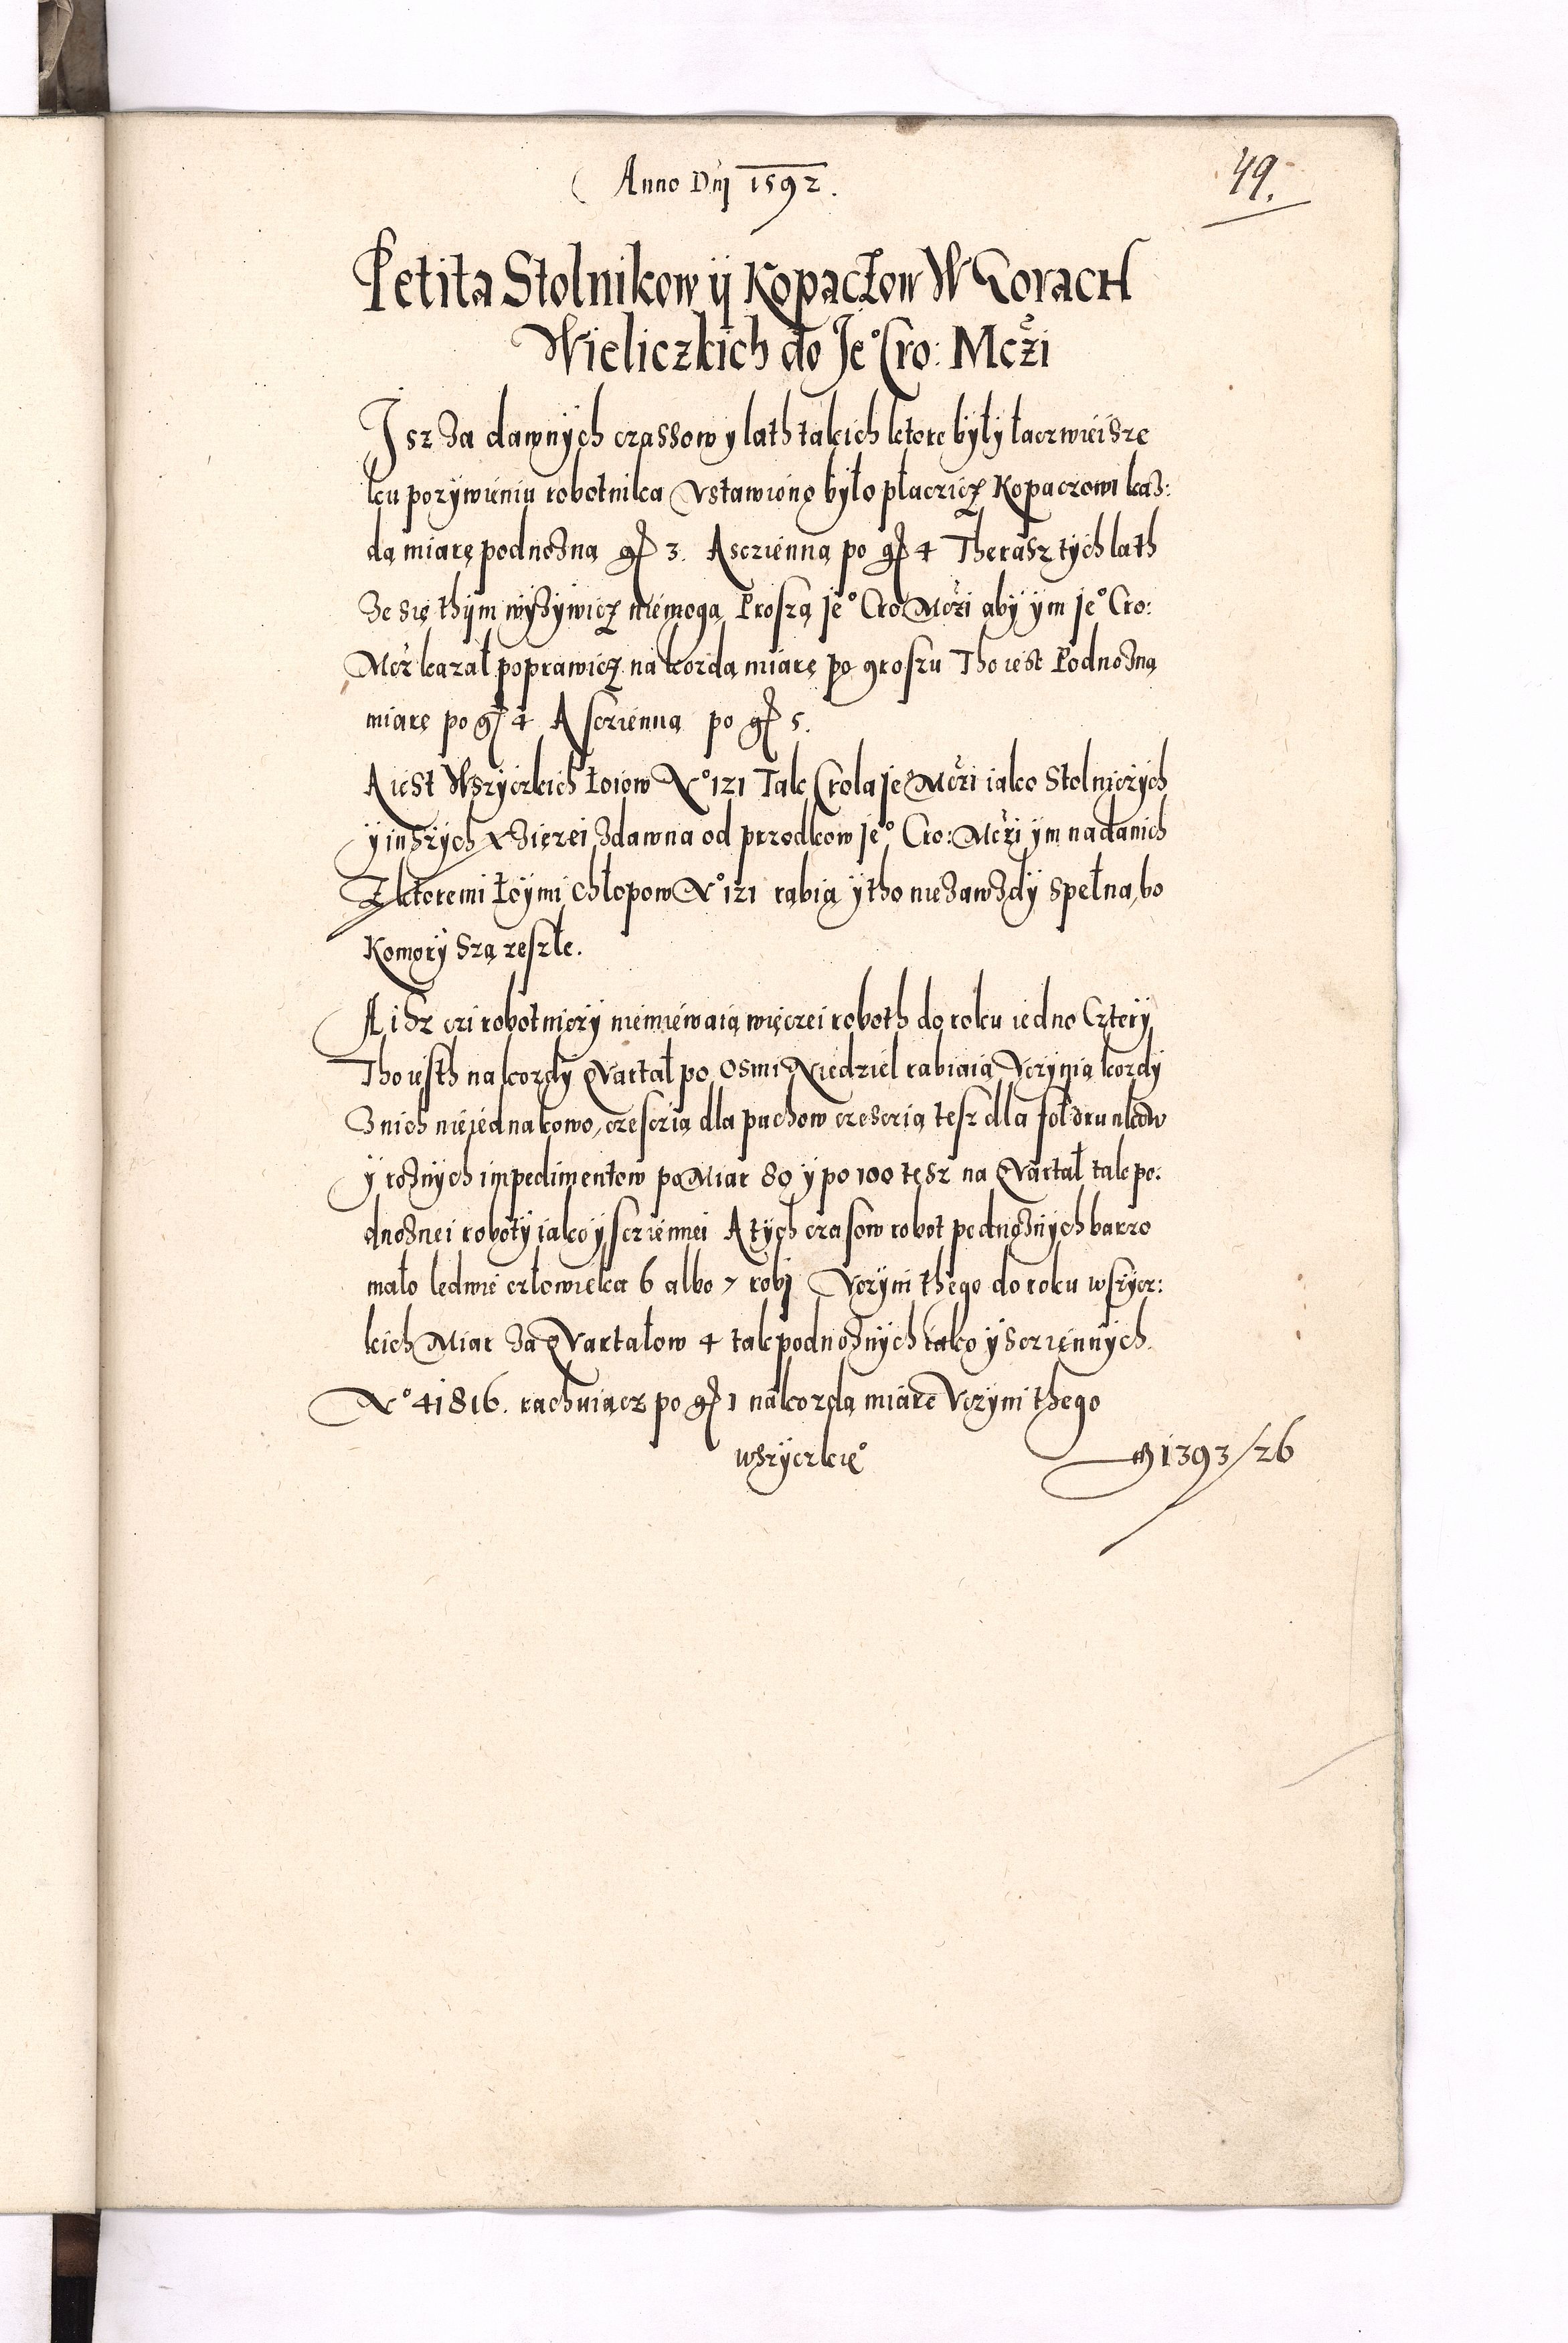 Anno Dnj 1592.
49.
Petita Stolnikow ÿ Kopaczow W Gorach
Wieliczkich do Je° Cro: Mczi
Jsz za dawnÿch czassow y lath takich ktore bÿłÿ łaczwieisze
ku pozÿwieniu robotnika Vstawiono bÿło płaczicz Kopaczowi kaz:
dą miarę podnozną gɼ 3. A sczienną po gɼ 4 Therasz tÿch lath
ze się thÿm wÿzÿwicz niemogą Proszą Je° Cro Mczi abÿ ÿm Je° Cro:
Mcz kazał poprawicz na kozdą miarę po groszu Tho iest Podnozną
miarę po gɼ 4 A sczienną po gɼ 5.
A iest Wszÿczkich Łoiow N° 121 Tak Crola Je° Mczi iako Stolniczÿch
ÿ inszÿch Xziezei zdawna od przodkow Je° Cro: Mczi ÿm nadanich
Z ktoremi Łoÿmi chłopow N° 121 rąbią ÿ tho niezawzdÿ spełna, bo
Komorÿ szą zeszłe.
A isz czi robotniczÿ niemiewaią więczei roboth do roku iedno Czterÿ
Tho iesth na kozdÿ Qvartał po osmi Niedziel rabiaią Vczÿnią kozdÿ
z nich nieiednakowo, czesczią dla puchow czesczią tesz dla fołdrunkow
ÿ roznÿch impedimentow po Miar 80 ÿ po 100 tesz na Qvartał tak po:
dnoznei robotÿ iako ÿ scziennei A tÿch czasow robot podnoznÿch barzo
mało ledwie człowieka 6 albo 7 robj Vczÿni thego do roku wszÿcz:
kich Miar za Qvartałow 4 tak podnoznÿch iako ÿ Scziennÿch
N° 41816. rachuiącz po gɼ 1 na kozdą miarę Vczÿni thego
wszÿczkie°
1393/26